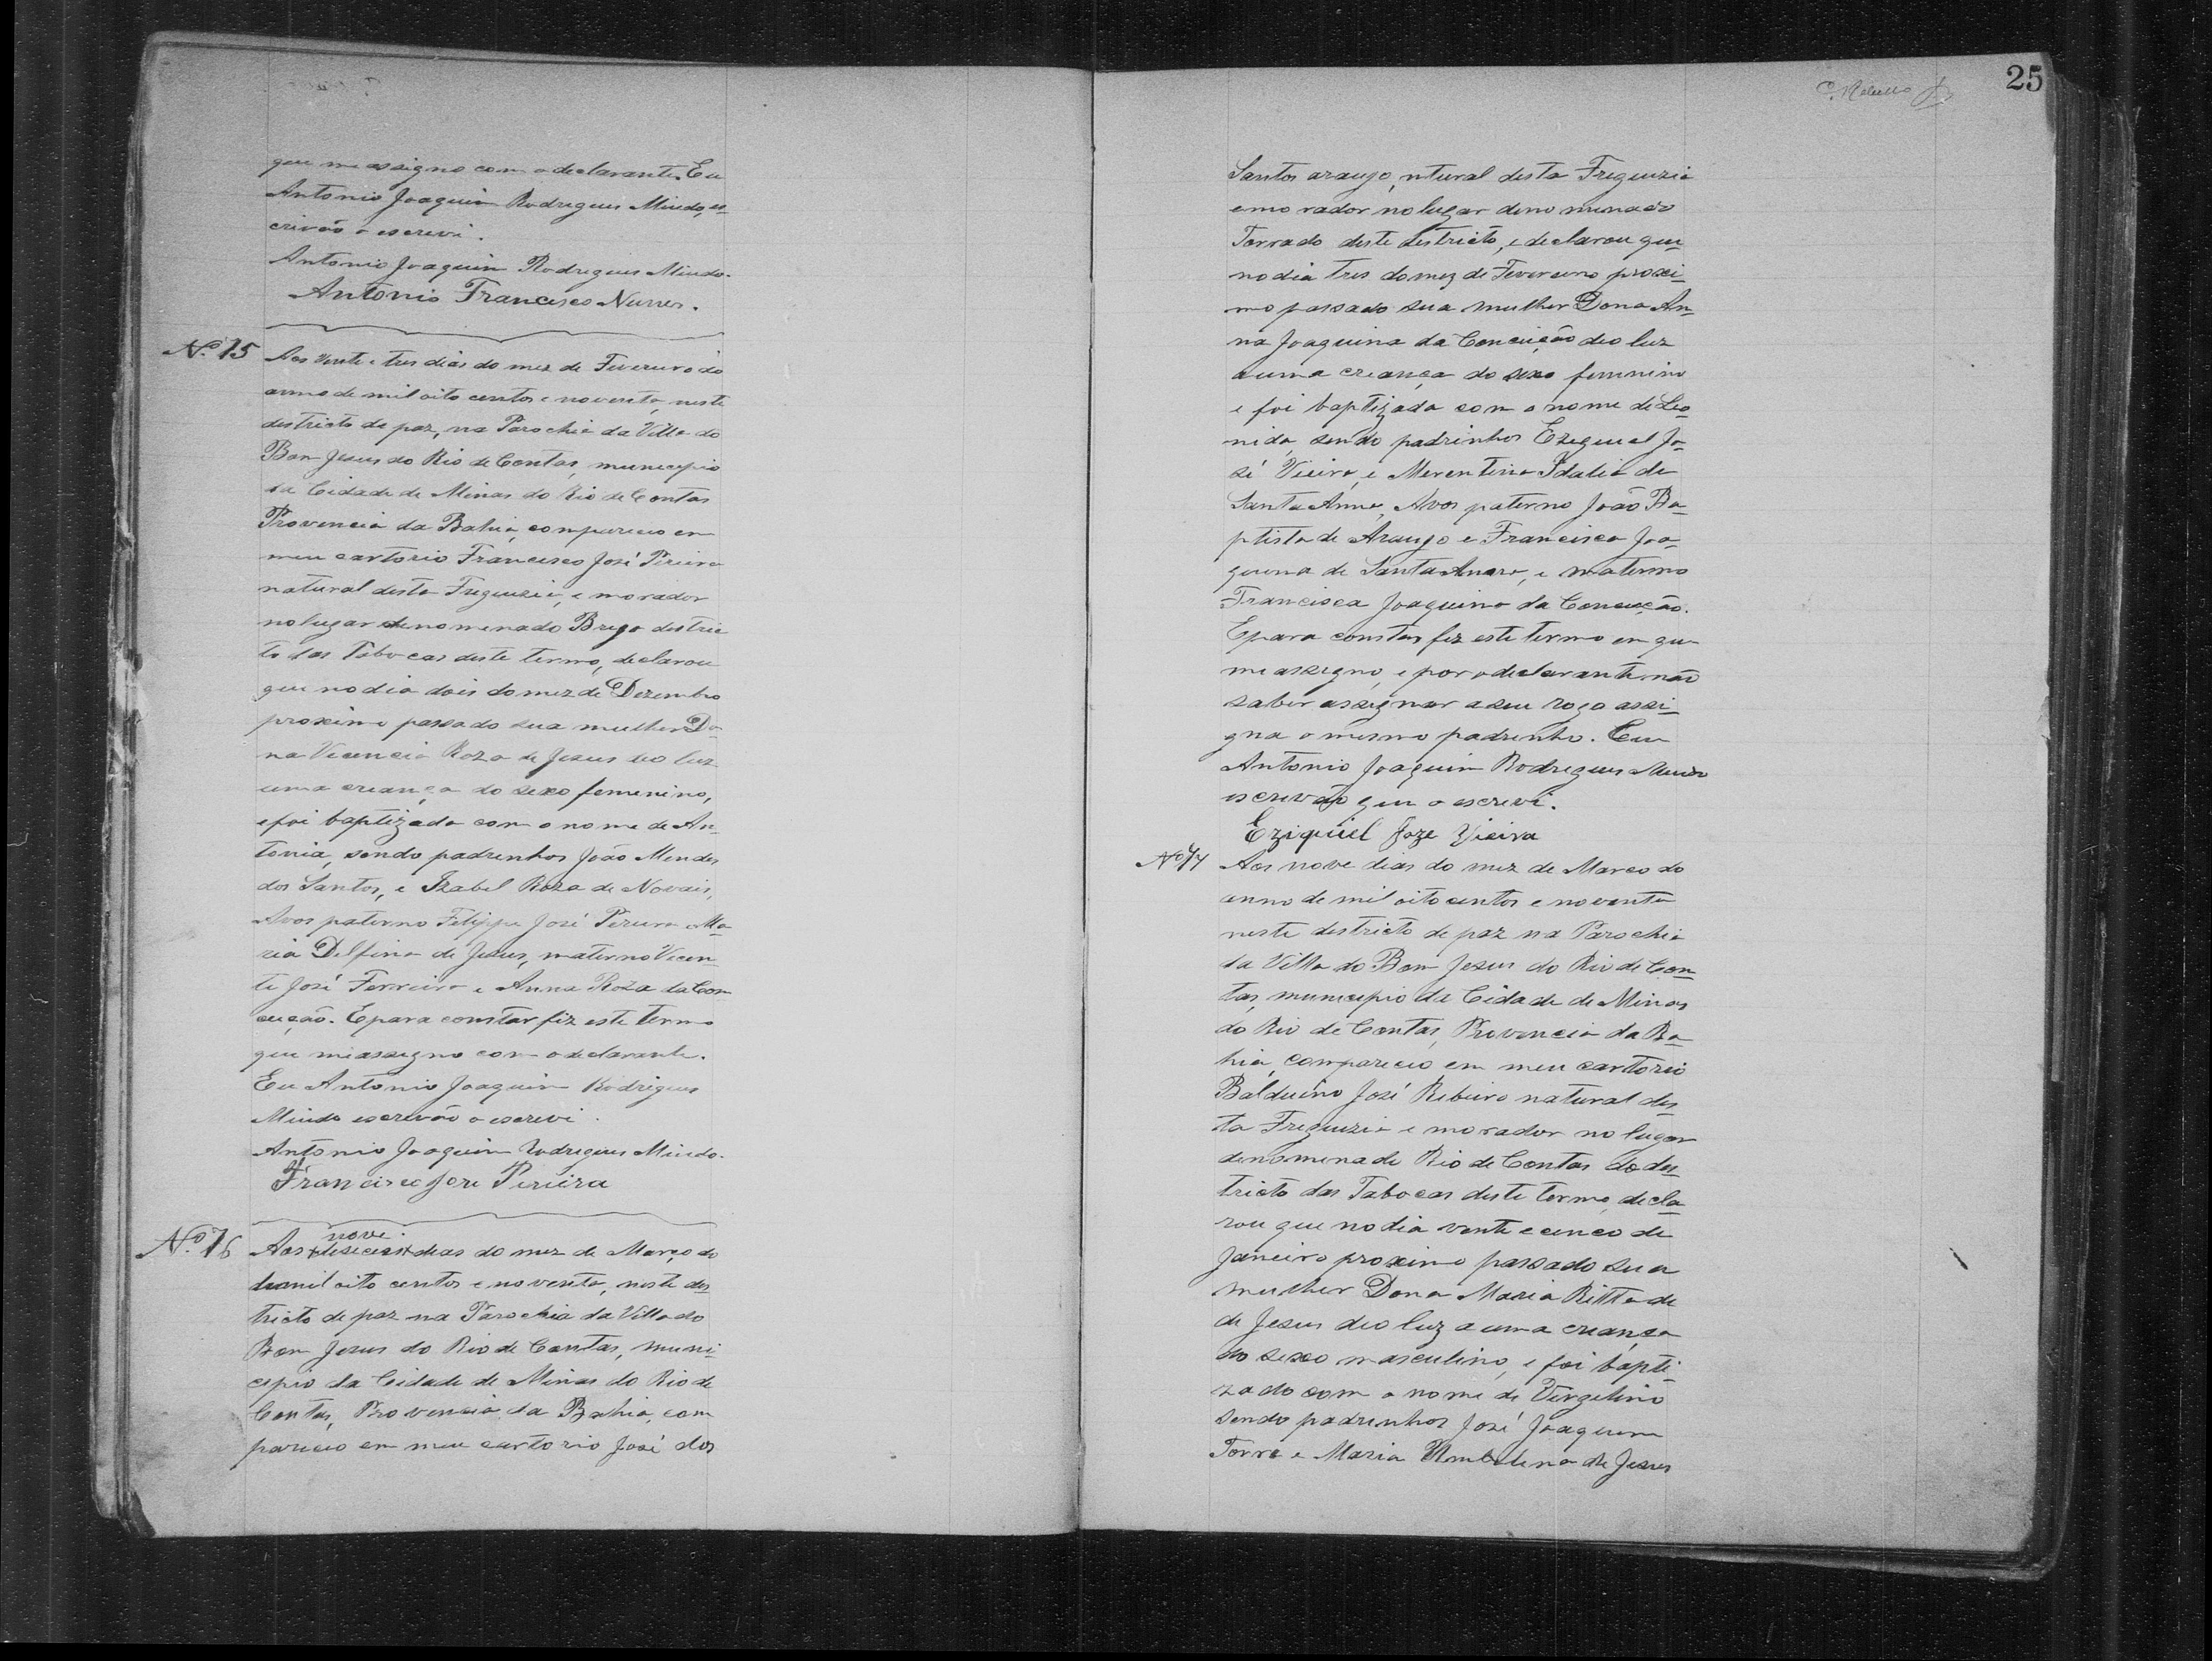 25
que me assigno com o declarante. Eu
Antonio Joaquim Rodrigues Miudo, es-
crivão o escrevi.
Antonio Joaquim Rodrigues Miudo.
Antonio Francisco Nunes.
Nº 15
Aos vente e tres dias do mez de Fevereiro do
anno de mil oito centos e noventa, neste
destricto de paz, na Parochia da Villa do
Bom Jesus do Rio de Contas, municipio
da Cidade de Minas do Rio de Contas
Provencia da Bahia, compareceo em
meu cartorio Francisco José Pereira
natural desta Freguezia, e morador
no lugar denomenado Brejo destric
to das Tabocas deste termo, declarou
que no dia dois do mez de Dezembro
proximo passado sua mulher Do-
na Vicencia Roza de Jesus deo luz
uma creança do sexo femenino,
e foi baptizada com o nome de An-
tonia, sendo padrenhos João Mendes
dos Santos, e Izabel Roza de Novais,
Avos paterno Felippe José Pereira e Ma
ria Delfina de Jesus, materno Vicen-
te José Ferreira e Anna Roza da Con
ceição. E para constar fiz este termo
que me assegno com o declarante.
Eu Antonio Joaquim Rodrigues
Miudo escrevão o escrevi.
Antonio Joaquim Rodrigues Miudo.
Francisco Joze Periera
Nº 16
nove
Aos dias do mez de Março do
de mil oito centos e noventa, neste des
tricto de paz na Parochia da Villa do
Bom Jesus do Rio de Contas, muni-
cipio da Cidade de Minas do Rio de
Contas, Provencia da Bahia, com
pareceo em meu cartorio José dos
Santos araujo, ntural desta Freguezia
e mo rador no lugar deno menado
Torrado deste destricto, e declarou que
no dia tres do mez de Fevereiro proxi-
mo passado sua mulher Dona An-
na Joaquina da Conceição deo luz
a uma creança do sexo femenino
e foi baptizada com o nome de Leo-
nida, sendo padrinhos Ezequiel Jo-
sé Vieira, e Merentina Idalia de
Santa Anna, Avos paterno João Ba-
ptista de Araujo e Francisca Joa-
quina de Santa Anna, e materno
Francisca Joaquina da Conceição.
E para constar fiz este termo em que
me assegno, e por o declarante não
saber assegnar a seu rogo assi-
gna o mesmo padrenho. Eu
Antonio Joaquim Rodregues Miudo
escrevão que o escrevi.
Eziqüiel Joze Vieira
Nº 17
Aos nove dias do mez de Março do
anno de mil oito centos e noventa
neste destricto de paz na Parochia
da Villa do Bom Jesus do Rio de Con-
tas, municipio da Cidade de Minas
do Rio de Contas, Provencia da Ba-
hia, compareceo em meu cartorio
Balduino José Ribeiro natural des
ta Freguezia e morador no lugar
denomenado Rio de Contas do des
tricto das Tabocas deste termo, decla
rou que no dia vente e cenco de
Janeiro proximo passado sua
mulher Dona Maria Ritta de
de Jesus deo luz a uma creança
do sexo masculino, e foi bapti-
zado com o nome de Vergelino
sendo padrenhos José Joaquim
Torre e Maria Umbelena de Jesus